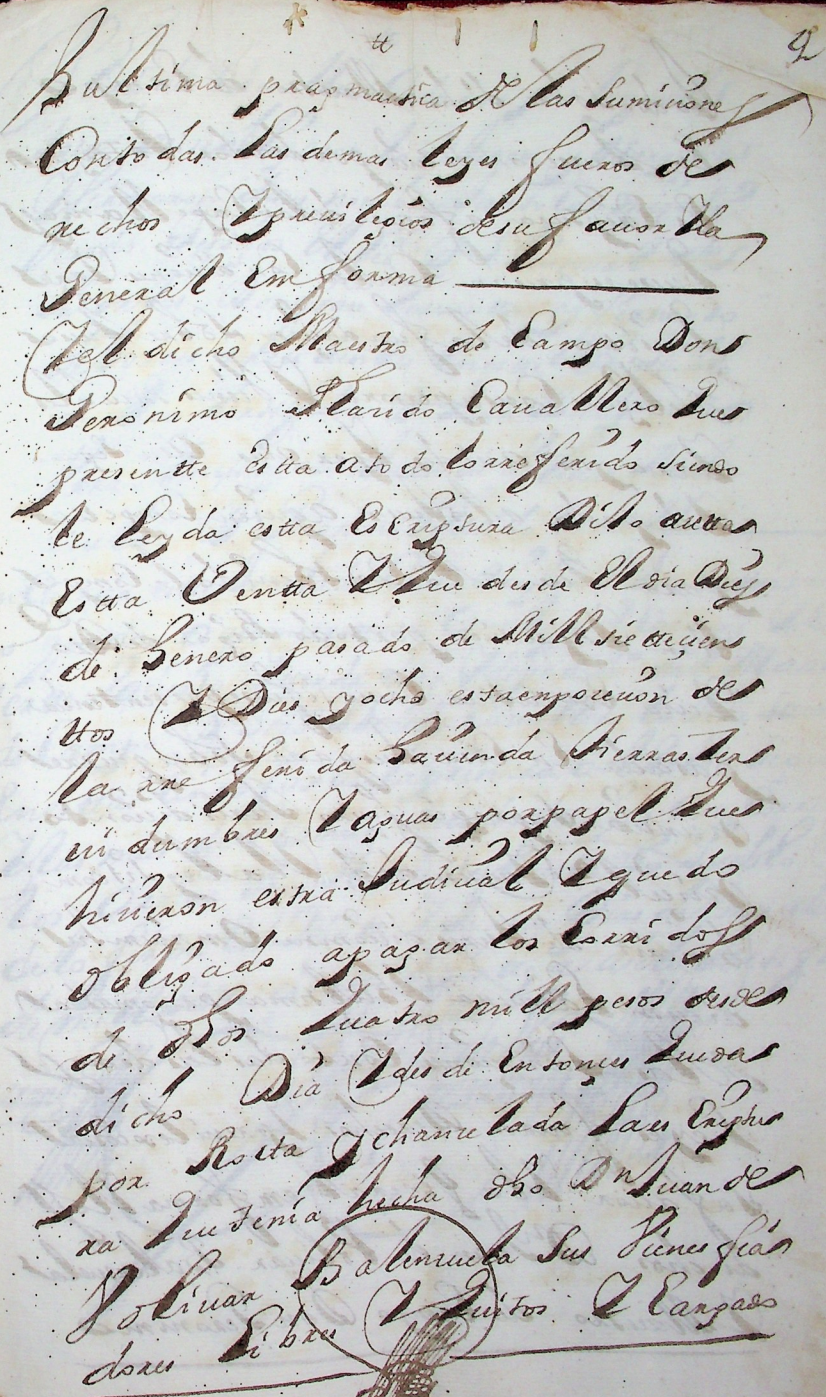 hultima pragmactica de las Sumiciones
Con to das. las demas leyes fueros de
rechos Y previlegios de su favor Y la
General Em forma
Y el dicho Maestro de Campo Don
Geronimo Cavallero que
presentte Estta a to do lo rreferido siendo
le Leyda estta Escriptura Dijo acetta
Estta Ventta Y que desde El dia Dies
de henero pasado de Mill sietteçien
ttos Y Dies y ocho esta en poseción de
la rre ferida haçienda tierras ser
vi dumbres Y aguas por papel que
hiçieron extra Judiçial Y quedo
obligado a pagar los Corridos
de dhos quatro mill pesos desde
dicho Dia Y des de Entonçes queda
por Rotta Y chançelada la es Criptu
ra que tenia hecha dho Dn Juan de
Bolivar Balençuela sus Vienes fia
dores Libres Y quitos Y Cargado